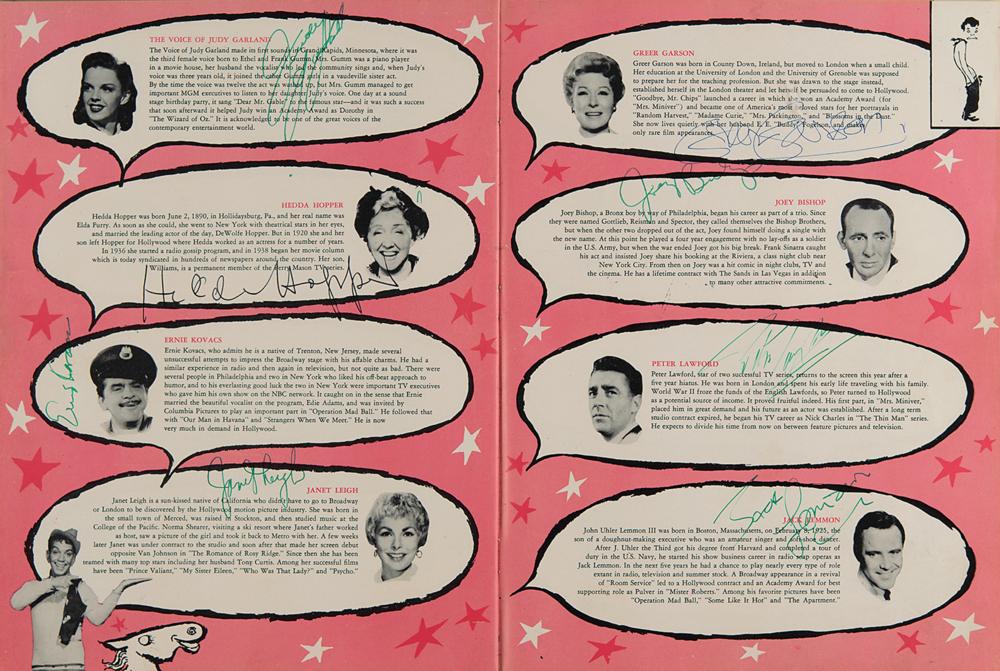 THE VOICE OF JUDY GARLAND
The Voice of Judy Garland made its first sounds in Grand Rapids, Minnesota, where it was
the third female voice born to Ethel and Frank Gumm. Mrs. Gumm was a piano player
in a movie house, her husband the vocalist who led the community sings and, when Judy's
voice was three years old, it joined the other Gumm girls in a vaudeville sister act.
By the time the voice was twelve the act was washed up, but Mrs. Gumm managed to get
important MGM executives to listen to her daughter Judy's voice. One day at a sound
stage birthday party, it sang "Dear Mr. Gable" to the famous star—and it was such a success
that soon afterward it helped Judy win an Academy Award as Dorothy in
"The Wizard of Oz." It is acknowledged to be one of the great voices of the
contemporary entertainment world.
Judy Garland
HEDDA HOPPER
Hedda Hopper was born June 2, 1890, in Hollidaysburg, Pa., and her real name was
Elda Furry. As soon as she could, she went to New York with theatrical stars in her eyes,
and married the leading actor of the day, DeWolfe Hopper. But in 1920 she and her
son left Hopper for Hollywood where Hedda worked as an actress for a number of years.
In 1936 she started a radio gossip program, and in 1938 began her movie column
which is today syndicated in hundreds of newspapers around the country. Her son,
Williams, is a permanent member of the Perry Mason TV series.
Hedda Hopper
ERNIE KOVACS
Ernie Kovacs, who admits he is a native of Trenton, New Jersey, made several
unsuccessful attempts to impress the Broadway stage with his affable charms. He had a
similar experience in radio and then again in television, but not quite as bad. There were
several people in Philadelphia and two in New York who liked his off-beat approach to
humor, and to his everlasting good luck the two in New York were important TV executives
who gave him his own show on the NBC network. It caught on in the sense that Ernie
married the beautiful vocalist on the program, Edie Adams, and was invited by
Columbia Pictures to play an important part in "Operation Mad Ball." He followed that
with "Our Man in Havana" and "Strangers When We Meet." He is now
very much in demand in Hollywood.
Ernie Kovacs
Janet Leigh
JANET LEIGH
Janet Leigh is a sun-kissed native of California who didn't have to go to Broadway
or London to be discovered by the Hollywood motion picture industry. She was born in
the small town of Merced, was raised in Stockton, and then studied music at the
College of the Pacific. Norma Shearer, visiting a ski resort where Janet's father worked
as host, saw a picture of the girl and took it back to Metro with her. A few weeks
later Janet was under contract to the studio and soon after that made her screen debut
opposite Van Johnson in "The Romance of Rosy Ridge." Since then she has been
teamed with many top stars including her husband Tony Curtis. Among her successful films
have been "Prince Valiant," "My Sister Eileen," "Who Was That Lady?" and "Psycho."
GREER GARSON
Greer Garson was born in County Down, Ireland, but moved to London when a small child.
Her education at the University of London and the University of Grenoble was supposed
to prepare her for the teaching profession. But she was drawn to the stage instead,
established herself in the London theater and let herself be persuaded to come to Hollywood.
"Goodbye, Mr. Chips" launched a career in which she won an Academy Award (for
"Mrs. Miniver") and became one of America's most beloved stars for her portrayals in
"Random Harvest," "Madame Curie," "Mrs. Parkington," and "Blossoms in the Dust."
She now lives quietly with her husband E. E. "Buddy" Fogelson, and makes
only rare film appearances.
Greer Garson
Joey Bishop
JOEY BISHOP
Joey Bishop, a Bronx boy by way of Philadelphia, began his career as part of a trio. Since
they were named Gottlieb, Reisman and Spector, they called themselves the Bishop Brothers,
but when the other two dropped out of the act, Joey found himself doing a single with
the new name. At this point he played a four year engagement with no lay-offs as a soldier
in the U.S. Army, but when the war ended Joey got his big break. Frank Sinatra caught
his act and insisted Joey share his booking at the Riviera, a class night club near
New York City. From then on Joey was a hit comic in night clubs, TV and
the cinema. He has a lifetime contract with The Sands in Las Vegas in addition
to many other attractive commitments.
PETER LAWFORD
Peter Lawford, star of two successful TV series, returns to the screen this year after a
five year hiatus. He was born in London and spent his early life traveling with his family.
World War II froze the funds of the English Lawfords, so Peter turned to Hollywood
as a potential source of income. It proved fruitful indeed. His first part, in "Mrs. Miniver,"
placed him in great demand and his future as an actor was established. After a long term
studio contract expired, he began his TV career as Nick Charles in "The Thin Man" series.
He expects to divide his time from now on between feature pictures and television.
Jack Lemmon
JACK LEMMON
John Uhler Lemmon III was born in Boston, Massachusetts, on February 8, 1925, the
son of a doughnut-making executive who was an amateur singer and soft-shoe dancer.
After J. Uhler the Third got his degree from Harvard and completed a tour of
duty in the U.S. Navy, he started his show business career in radio soap operas as
Jack Lemmon. In the next five years he had a chance to play nearly every type of role
extant in radio, television and summer stock. A Broadway appearance in a revival
of "Room Service" led to a Hollywood contract and an Academy Award for best
supporting role as Pulver in "Mister Roberts." Among his favorite pictures have been
"Operation Mad Ball," "Some Like It Hot" and "The Apartment."